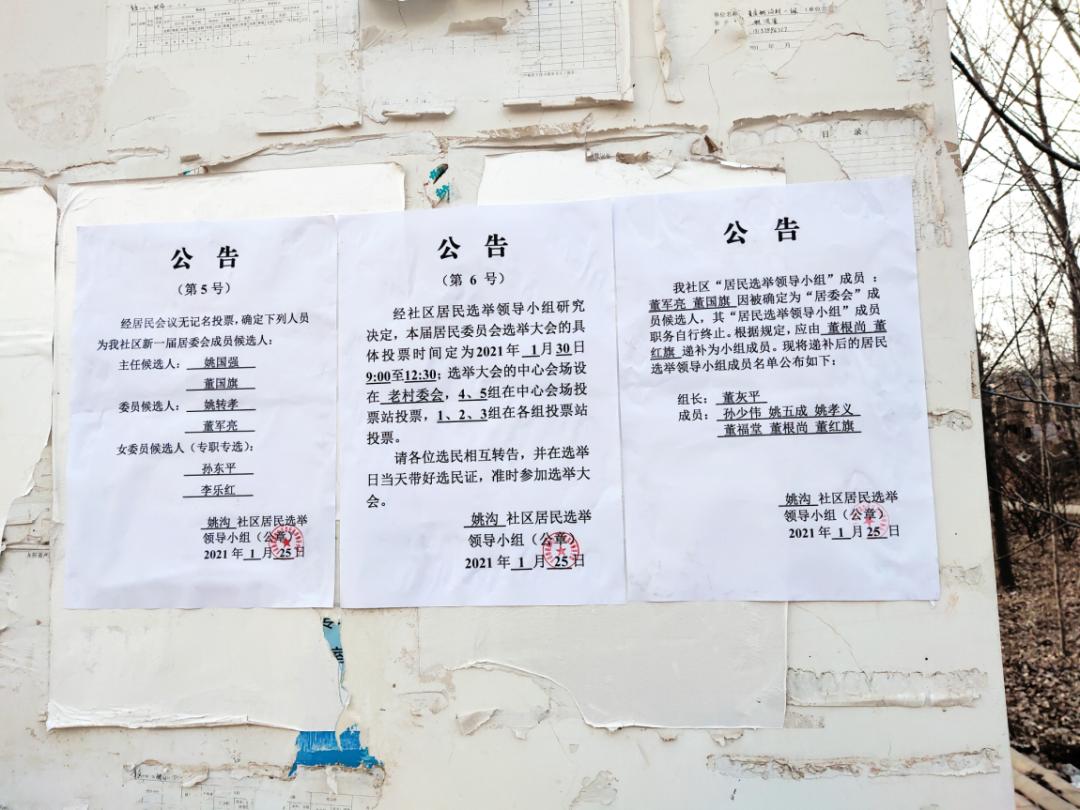 公告
（第5号）
经居民会议无记名投票，确定下列人员
为我社区新一届居委会成员候选人：
主任候选人： 姚国强
董国旗
委员候选人： 姚转孝
董军亮
女委员候选人（专职专选）：
孙东平
李乐红
姚沟 社区居民选举
领导小组（公章）
2021年 1 月 25 日
公告
（第 6 号）
经社区居民选举领导小组研究
决定，本届居民委员会选举大会的具
体投票时间定为2021年 1 月 30 日
9:00至12:30；选举大会的中心会场设
在 老村委会 ，4、5组在中心会场投
票站投票，1、2、3组在各组投票站
投票。
请各位选民相互转告，并在选举
日当天带好选民证，准时参加选举大
会。
姚沟 社区居民选举
领导小组（公章）
2021年 1 月 25 日
公告
我社区“居民选举领导小组”成员：
董军亮 董国旗 因被确定为“居委会”成
员候选人，其“居民选举领导小组”成员
职务自行终止。根据规定，应由 董根尚 董
红旗 递补为小组成员。现将递补后的居民
选举领导小组成员名单公布如下：
组长： 董灰平
成员： 孙少伟 姚五成 姚孝义
董福堂 董根尚 董红旗
姚沟 社区居民选举
领导小组（公章）
2021年 1 月 25 日
目录